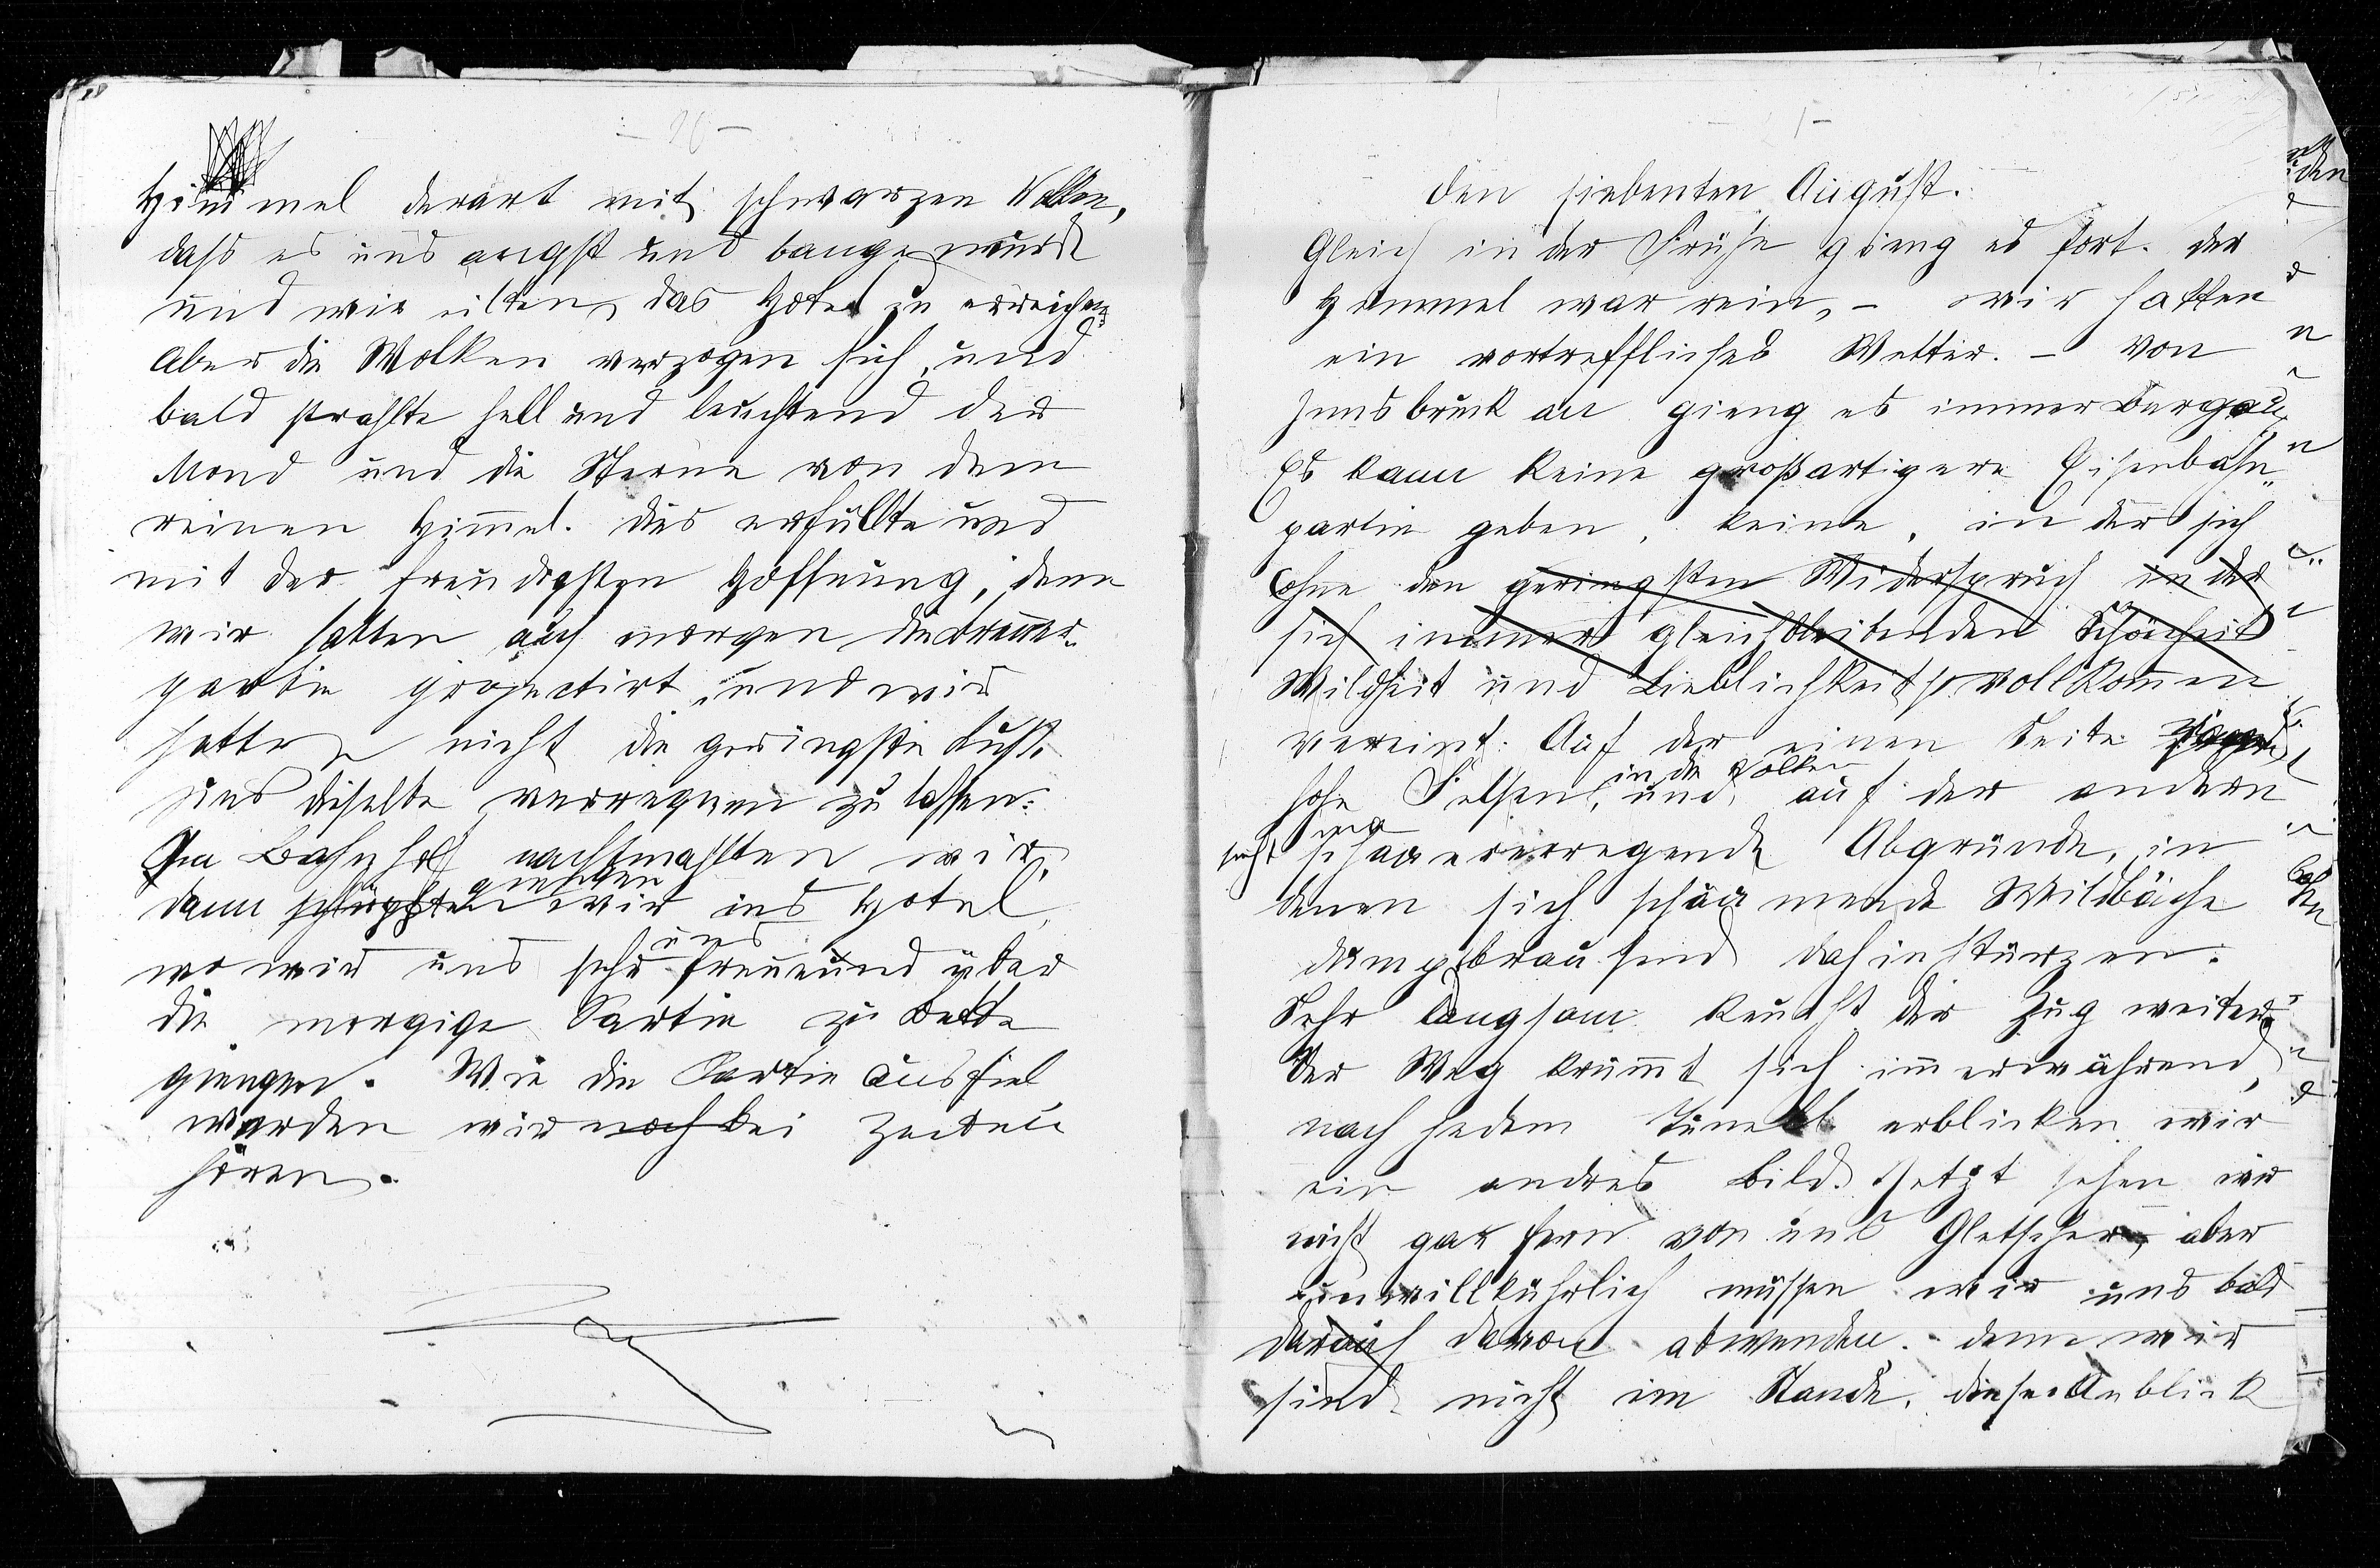 - 20 -
Himmel derart mit schwarzen Wolken,
dass es uns angst und bange wurde
und wir eilten, das Hotel zu erreichen.
Aber die Wolken verzogen sich, und
bald strahlte hell und leuchtend der
Mond und die Sterne von dem
reinen Himmel. Dies erfüllte uns
mit der freudigsten Hoffnung, denn
wir hatten auf morgen die Brenner-
partie projectirt, und wir
hatten nicht die geringste Lust,
uns dieselbe verregnen zu lassen.
Im Bahnhof nachtmahlten wir,
giengen
dann schlüpften wir ins Hotel,
uns
wo wir uns sehr freuend über
die morgige Partie zu Bette
giengen. Wie die Partie ausfiel
werden wir noch bei Zeiten
hören.
- 1 -
Den siebenten August.
Gleich in der Frühe gieng es fort. Der
Himmel war rein, - wir hatten
ein vortreffliches Wetter. - Von
Innsbruck an gieng es immer bergauf.
Es kann keine großartigere Eisenbahn-
partie geben, keine, in der sich
ohne den geringsten Widerspruch in der
sich immer gleichbleibenden Schönheit
Wildheit und Lieblichkeit so vollkommen
vereint. Auf der einen Seite
in die Wolken
hohe Felsen, und auf der andern
man
sieht schauererregende Abgründe, in
denen sich schäumende Wildbäche
dumpfbrausend dahinstürzen.
Sehr langsam keucht der Zug weiter.
Der Weg krümmt sich immerwährend,
nach jedem Tunell erblicken wir
ein andres Bild. Jetzt sehen wir
nicht gar fern von uns Gletscher, aber
unwillkührlich müssen wir uns bald
darauf davon abwenden. denn wir
sind nicht im Stande, diesen Anblick